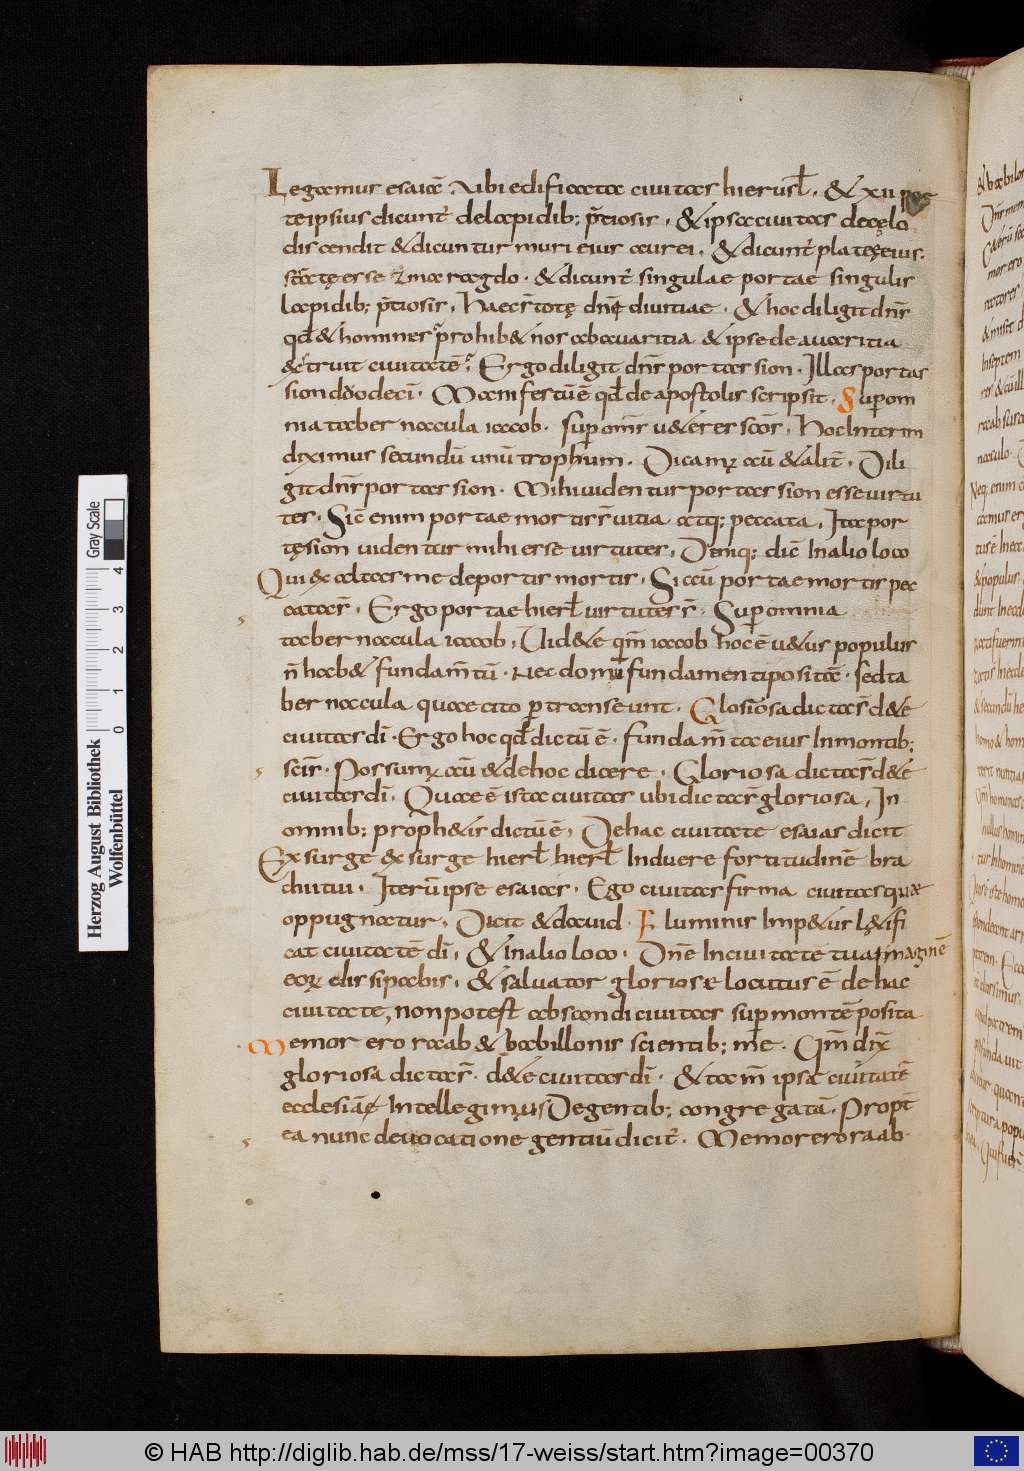 Legamus esaiā. Ubi edificata ciuitas hierusł. & xii por
te ipsius dicunt̄ de lapidib; p̄tiosis. & ipsa ciuitas de cęlo
discendit & dicuntur muri eius aurei. & dicunt̄ plateę eius.
sc̄āe esse smaragdo. & dicunt̄ singulae portae singulis
lapidib; p̄tiosis. Haec s̄ totę dn̄ę diuitiae. & hoc diligit dn̄s
qđ & homines prohib& nos ab auaritia & ipse de auaritia
&struit ciuitatē. Ergo diligit dn̄s portas sion. Illas portas
sion duodeci. Manifestū ē qđ de apostolis scripsit. Super om
nia tabernacula iacob. sup om̄s u&eres sc̄os. Hoc interim
diximus secundū unū trophum. Dicamus aū & alit̄. Dili
git dn̄s portas sion. Mihi uidentur portas sion esse uirtu
tes. Sic̄ enim portae mortis s̄ uitia atq; peccata. Ita por
tę sion uidentur mihi esse uirtutes. Deniq; dic̄ In alio loco
Qui exaltas me de portis mortis. Sic aū portae mortis pec
cata s̄. Ergo portae hierł uirtutes s̄. Super omnia
tabernacula iacob. Uid&e qm̄ iacob hoc ē u&us populus
n̄ hab& fundam̄tū. Nec domū fundamenti posita. sed ta
bernacula quae cito p transeunt. Gloriosa dicta s̄ d&e
ciuitas dī. Ergo hoc qđ dictū ē. fundam̄ta eius In montib;
sc̄is. Possumus aū & de hoc dicere. Gloriosa dicta s̄ d&e
ciuitas dī. Quae ē ista ciuitas ubi dicta s̄ gloriosa. In
omnib; proph&is dictū ē. De hac ciuitate esaias dicit
Exsurge exsurge hierł hierł Induere fortitudinē bra
chii tui. Iterū ipse esaias. Ego ciuitas firma ciuitas quae
oppugnatur. Dicit & dauid. Fluminis Imp&us l&ifi
cat ciuitatē dī. & In alio loco. Dn̄e In ciuitate tua imaginē
eorum dissipabis. & saluator gloriose locutus ē de hac
ciuitate, non potest abscondi ciuitas sup montē posita
Memor ero raab & babillonis scientib; me. Qm̄ dix̄
gloriosa dicta s̄. d&e ciuitas dī. & tam̄ ipsā ciuitatē
ecclesiā Intellegimus De gentib; congregatā. Propt̄
ea nunc de uocatione gentiū dicit̄. Memor ero raab.
Herzog August Bibliothek
Wolfenbüttel
0 1 2 3 4 Gray Scale
© HAB http://diglib.hab.de/mss/17-weiss/start.htm?image=00370